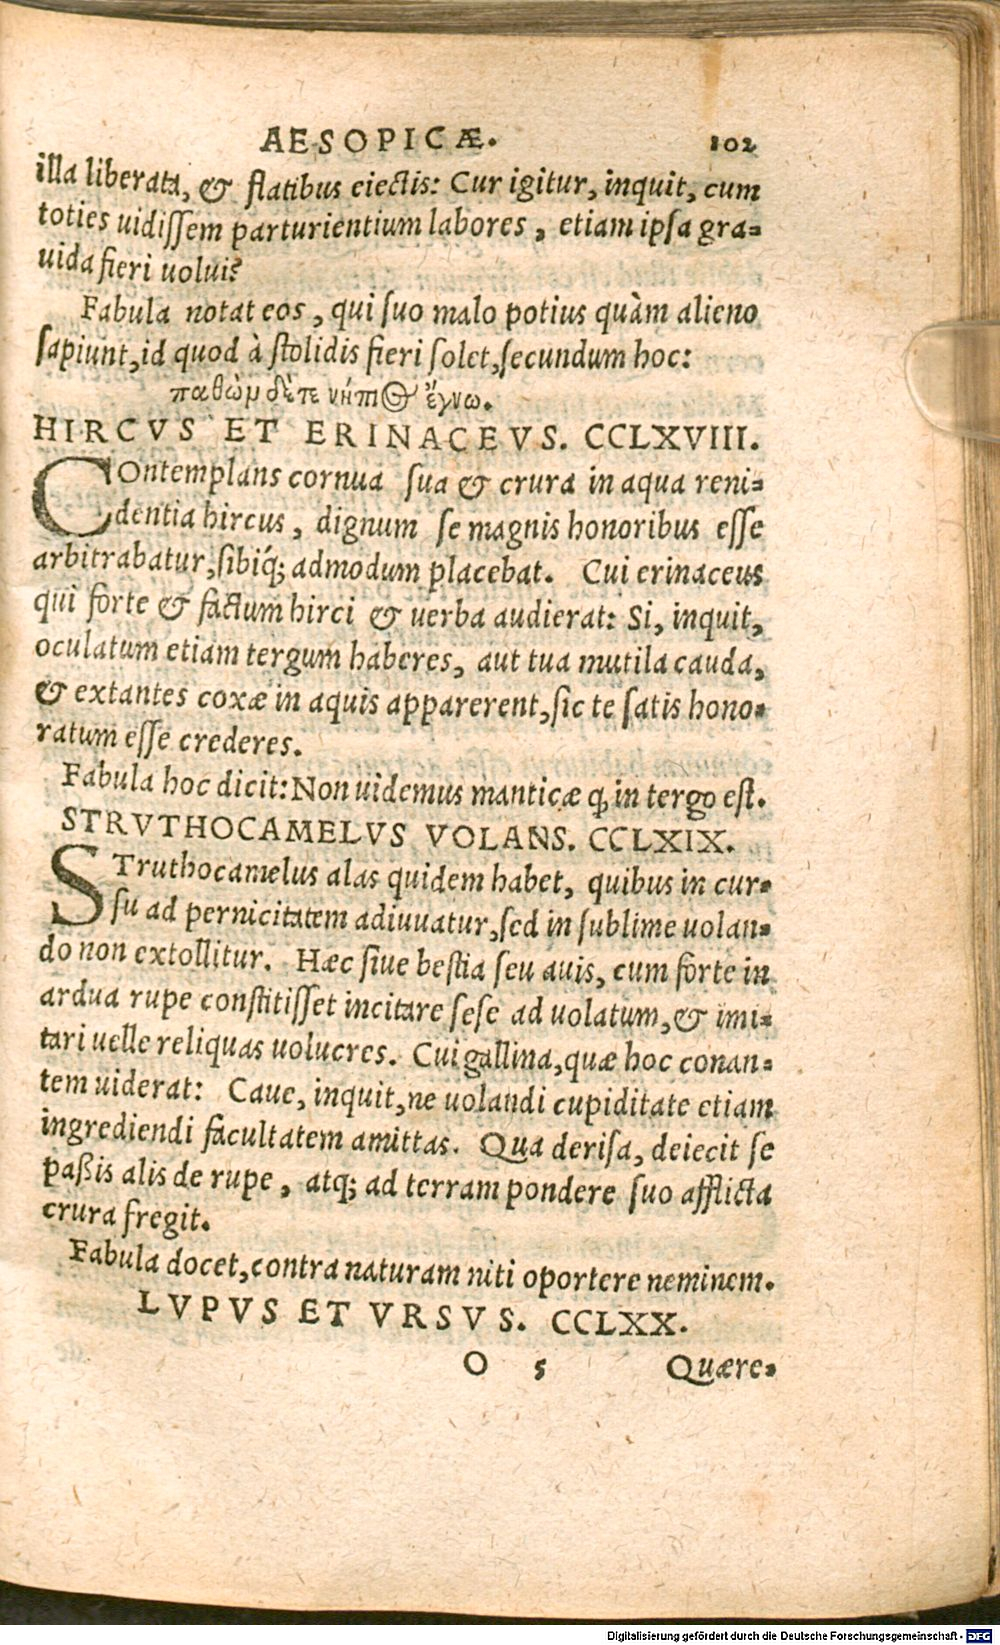 AESOPICÆ. 102
illa liberata, & flatibus eiectis: Cur igitur, inquit, cum
toties uidissem parturientium labores, etiam ipsa gra-
uida fieri uolui?
Fabula notat eos, qui suo malo potius quàm alieno
sapiunt, id quod à stolidis fieri solet, secundum hoc:
παθὼμ δὲ τε νήπιος ἔγνω.
HIRCVS ET ERINACEVS. CCLXVIII.
COntemplans cornua sua & crura in aqua reni-
dentia hircus, dignum se magnis honoribus esse
arbitrabatur, sibiq́; admodum placebat. Cui erinaceus
qui forte & factum hirci & uerba audierat: Si, inquit,
oculatum etiam tergum haberes, aut tua mutila cauda,
& extantes coxæ in aquis apparerent, sic te satis hono-
ratum esse crederes.
Fabula hoc dicit: Non uidemus manticæ ꝙ in tergo est.
STRVTHOCAMELVS VOLANS. CCLXIX.
STruthocamelus alas quidem habet, quibus in cur-
su ad pernicitatem adiuuatur, sed in sublime uolan-
do non extollitur. Hæc siue bestia seu auis, cum forte in
ardua rupe constitisset incitare sese ad uolatum, & imi-
tari uelle reliquas uolucres. Cui gallina, quæ hoc conan-
tem uiderat: Caue, inquit, ne uolandi cupiditate etiam
ingrediendi facultatem amittas. Qua derisa, deiecit se
paßis alis de rupe, atq; ad terram pondere suo afflicta
crura fregit.
Fabula docet, contra naturam niti oportere neminem.
LVPVS ET VRSVS. CCLXX.
O 5 Quære-
Digitalisierung gefördert durch die Deutsche Forschungsgemeinschaft - DFG